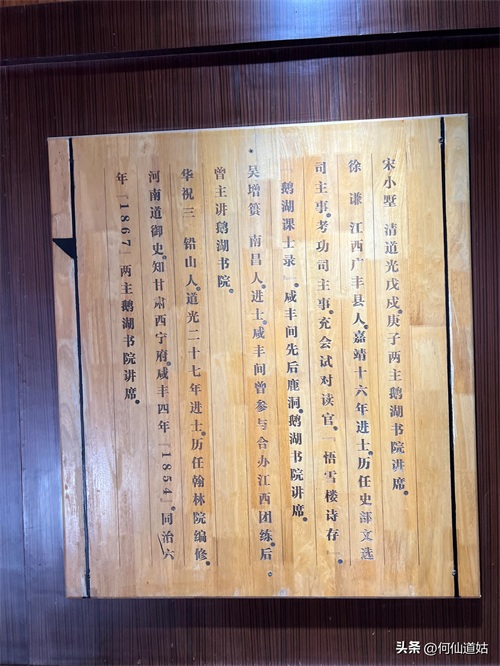 宋小墅 清道光戊戌。庚子两主鹅湖书院讲席。
徐谦 江西广丰县人。嘉靖十六年进士。历任史部文选
司主事。考功司主事。充会试对读官。「悟雪楼诗存」。
鹅湖课士录」。咸丰间先后鹿洞。鹅湖书院讲席。
吴增簧 南昌人。进士。咸丰间曾参与合办江西团练。后。
曾主讲鹅湖书院。
华祝三 铅山人。道光二十七年进士。历任翰林院编修。
河南道御史。知甘肃西宁府。咸丰四年「1854」。同治六
年「1867」两主鹅湖书院讲席。
头条 @何仙道姑